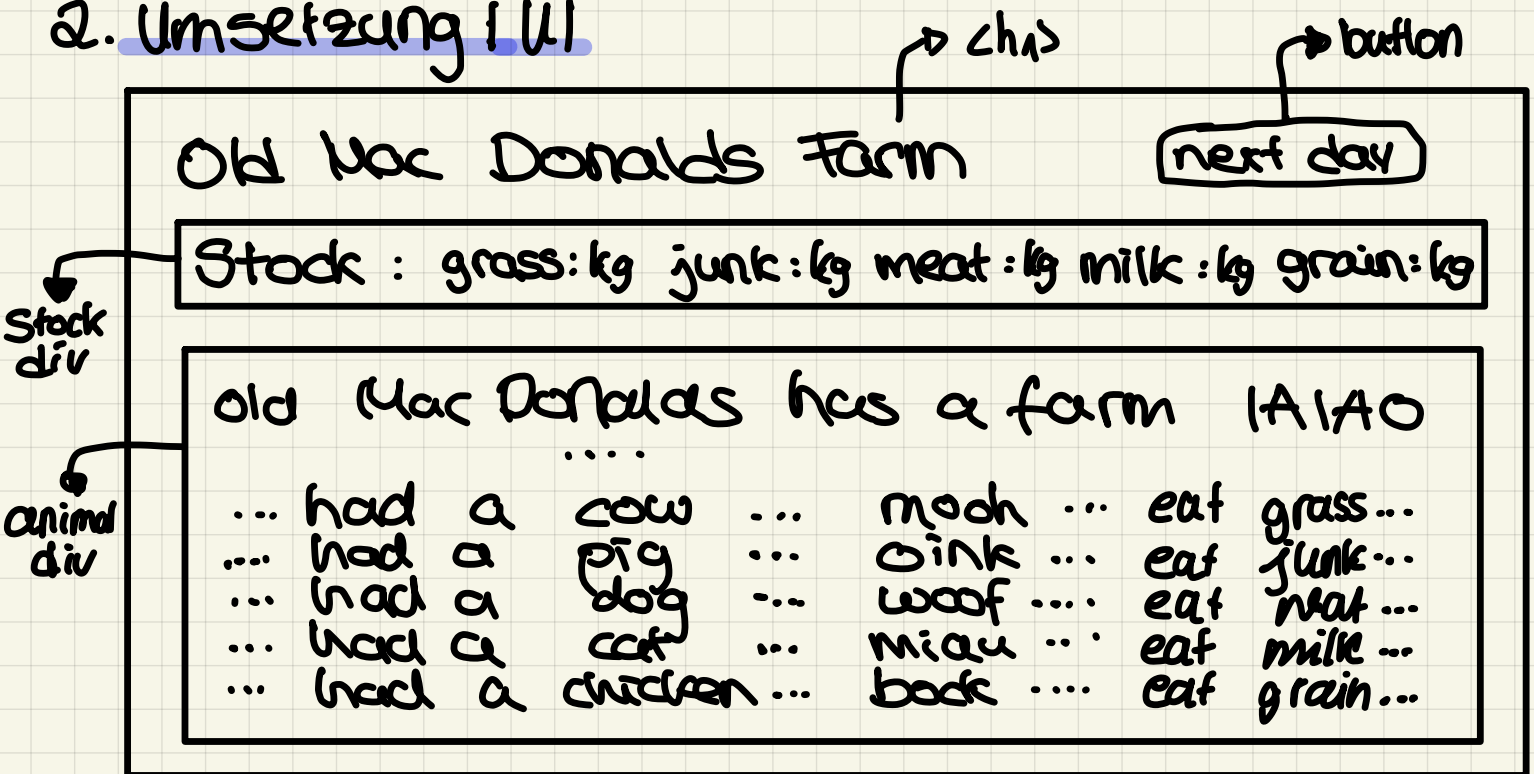 2. Umsetzung / UI
<h1>
button
Old Mac Donalds Farm
next day
Stock : grass:kg junk:kg meat:kg milk:kg grain:kg
Stock
div
old Mac Donalds has a farm IAIAO
....
animal
div
... had a cow ... mooh ... eat grass...
.... had a pig ... oink ... eat junk...
... had a dog ... woof .... eat meat ...
... had a cat ... miau ... eat milk ...
... had a chicken ... bock .... eat grain...